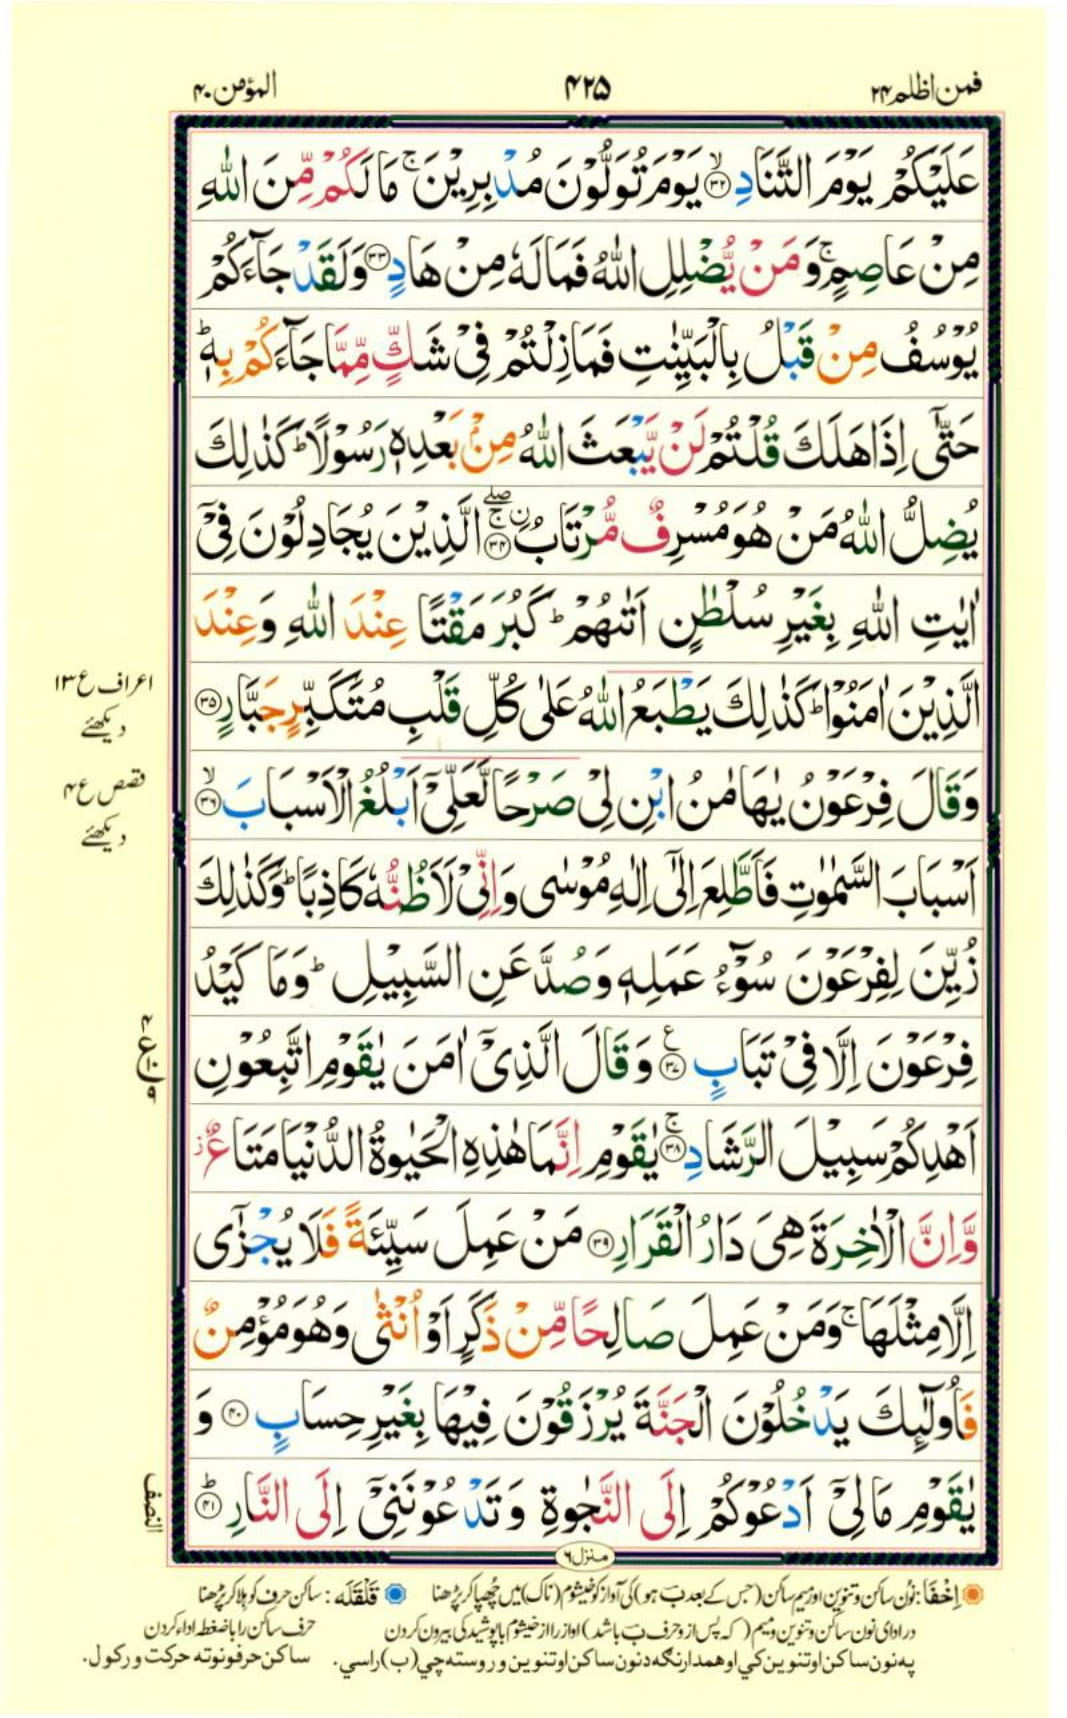 فمن اظلم ۲۴
۴۲۵
المؤمن ۴۰
عَلَيْكُمْ يَوْمَ التَّنَادِ ۙ‏﴿۳۲﴾ يَوْمَ تُوَلُّوْنَ مُدْبِرِيْنَ ۚ مَا لَكُمْ مِّنَ اللّٰهِ
مِنْ عَاصِمٍ ۚ وَمَنْ يُّضْلِلِ اللّٰهُ فَمَا لَهٗ مِنْ هَادٍ ﴿۳۳﴾ وَلَقَدْ جَآءَكُمْ
يُوْسُفُ مِنْ قَبْلُ بِالْبَيِّنٰتِ فَمَا زِلْتُمْ فِيْ شَكٍّ مِّمَّا جَآءَكُمْ بِهٖ ؕ
حَتّٰۤى اِذَا هَلَكَ قُلْتُمْ لَنْ يَّبْعَثَ اللّٰهُ مِنْۢ بَعْدِهٖ رَسُوْلًا ؕ كَذٰلِكَ
يُضِلُّ اللّٰهُ مَنْ هُوَ مُسْرِفٌ مُّرْتَابُ ۨ ۚ ۖ ﴿۳۴﴾ الَّذِيْنَ يُجَادِلُوْنَ فِيْۤ
اٰيٰتِ اللّٰهِ بِغَيْرِ سُلْطٰنٍ اَتٰىهُمْ ؕ كَبُرَ مَقْتًا عِنْدَ اللّٰهِ وَعِنْدَ
الَّذِيْنَ اٰمَنُوْا ؕ كَذٰلِكَ يَطْبَعُ اللّٰهُ عَلٰى كُلِّ قَلْبِ مُتَكَبِّرٍ جَبَّارٍ ﴿۳۵﴾
وَقَالَ فِرْعَوْنُ يٰهَامٰنُ ابْنِ لِيْ صَرْحًا لَّعَلِّيْۤ اَبْلُغُ الْاَسْبَابَ ۙ ﴿۳۶﴾
اَسْبَابَ السَّمٰوٰتِ فَاَطَّلِعَ اِلٰۤى اِلٰهِ مُوْسٰى وَاِنِّيْ لَاَظُنُّهٗ كَاذِبًا ؕ وَكَذٰلِكَ
زُيِّنَ لِفِرْعَوْنَ سُوْٓءُ عَمَلِهٖ وَصُدَّ عَنِ السَّبِيْلِ ؕ وَمَا كَيْدُ
فِرْعَوْنَ اِلَّا فِيْ تَبَابٍ ﴿۳۷﴾ ع وَقَالَ الَّذِيْۤ اٰمَنَ يٰقَوْمِ اتَّبِعُوْنِ
اَهْدِكُمْ سَبِيْلَ الرَّشَادِ ۚ ﴿۳۸﴾ يٰقَوْمِ اِنَّمَا هٰذِهِ الْحَيٰوةُ الدُّنْيَا مَتَاعٌ ز
وَّاِنَّ الْاٰخِرَةَ هِيَ دَارُ الْقَرَارِ ﴿۳۹﴾ مَنْ عَمِلَ سَيِّئَةً فَلَا يُجْزٰۤى
اِلَّا مِثْلَهَا ۚ وَمَنْ عَمِلَ صَالِحًا مِّنْ ذَكَرٍ اَوْ اُنْثٰى وَهُوَ مُؤْمِنٌ
فَاُولٰٓئِكَ يَدْخُلُوْنَ الْجَنَّةَ يُرْزَقُوْنَ فِيْهَا بِغَيْرِ حِسَابٍ ﴿۴۰﴾ وَ
يٰقَوْمِ مَا لِيْۤ اَدْعُوْكُمْ اِلَى النَّجٰوةِ وَتَدْعُوْنَنِيْۤ اِلَى النَّارِ ؕ ﴿۴۱﴾
اعراف ع ۱۳
دیکھئے
قصص ع ۴
دیکھئے
النصف
منزل ۶
اِخْفَا: نُون ساکن و تنوین اور میم ساکن (جس کے بعد بَ ہو) کی آواز کو خیشوم (ناک) میں چُھپا کر پڑھنا قَلْقَلَہ: ساکن حرف کو ہلا کر پڑھنا
در ادای نون ساکن و تنوین و میم (که پس از و حرف بَ باشد) اواز را از خیشوم با پوشیدگی بیرون کردن حرف ساکن را با ضغطه اداء کردن
په نون ساکن او تنوين کي او همدارنگه دنون ساکن او تنوين وروسته چي (ب) راسي. ساکن حرفونو ته حرکت ورکول.